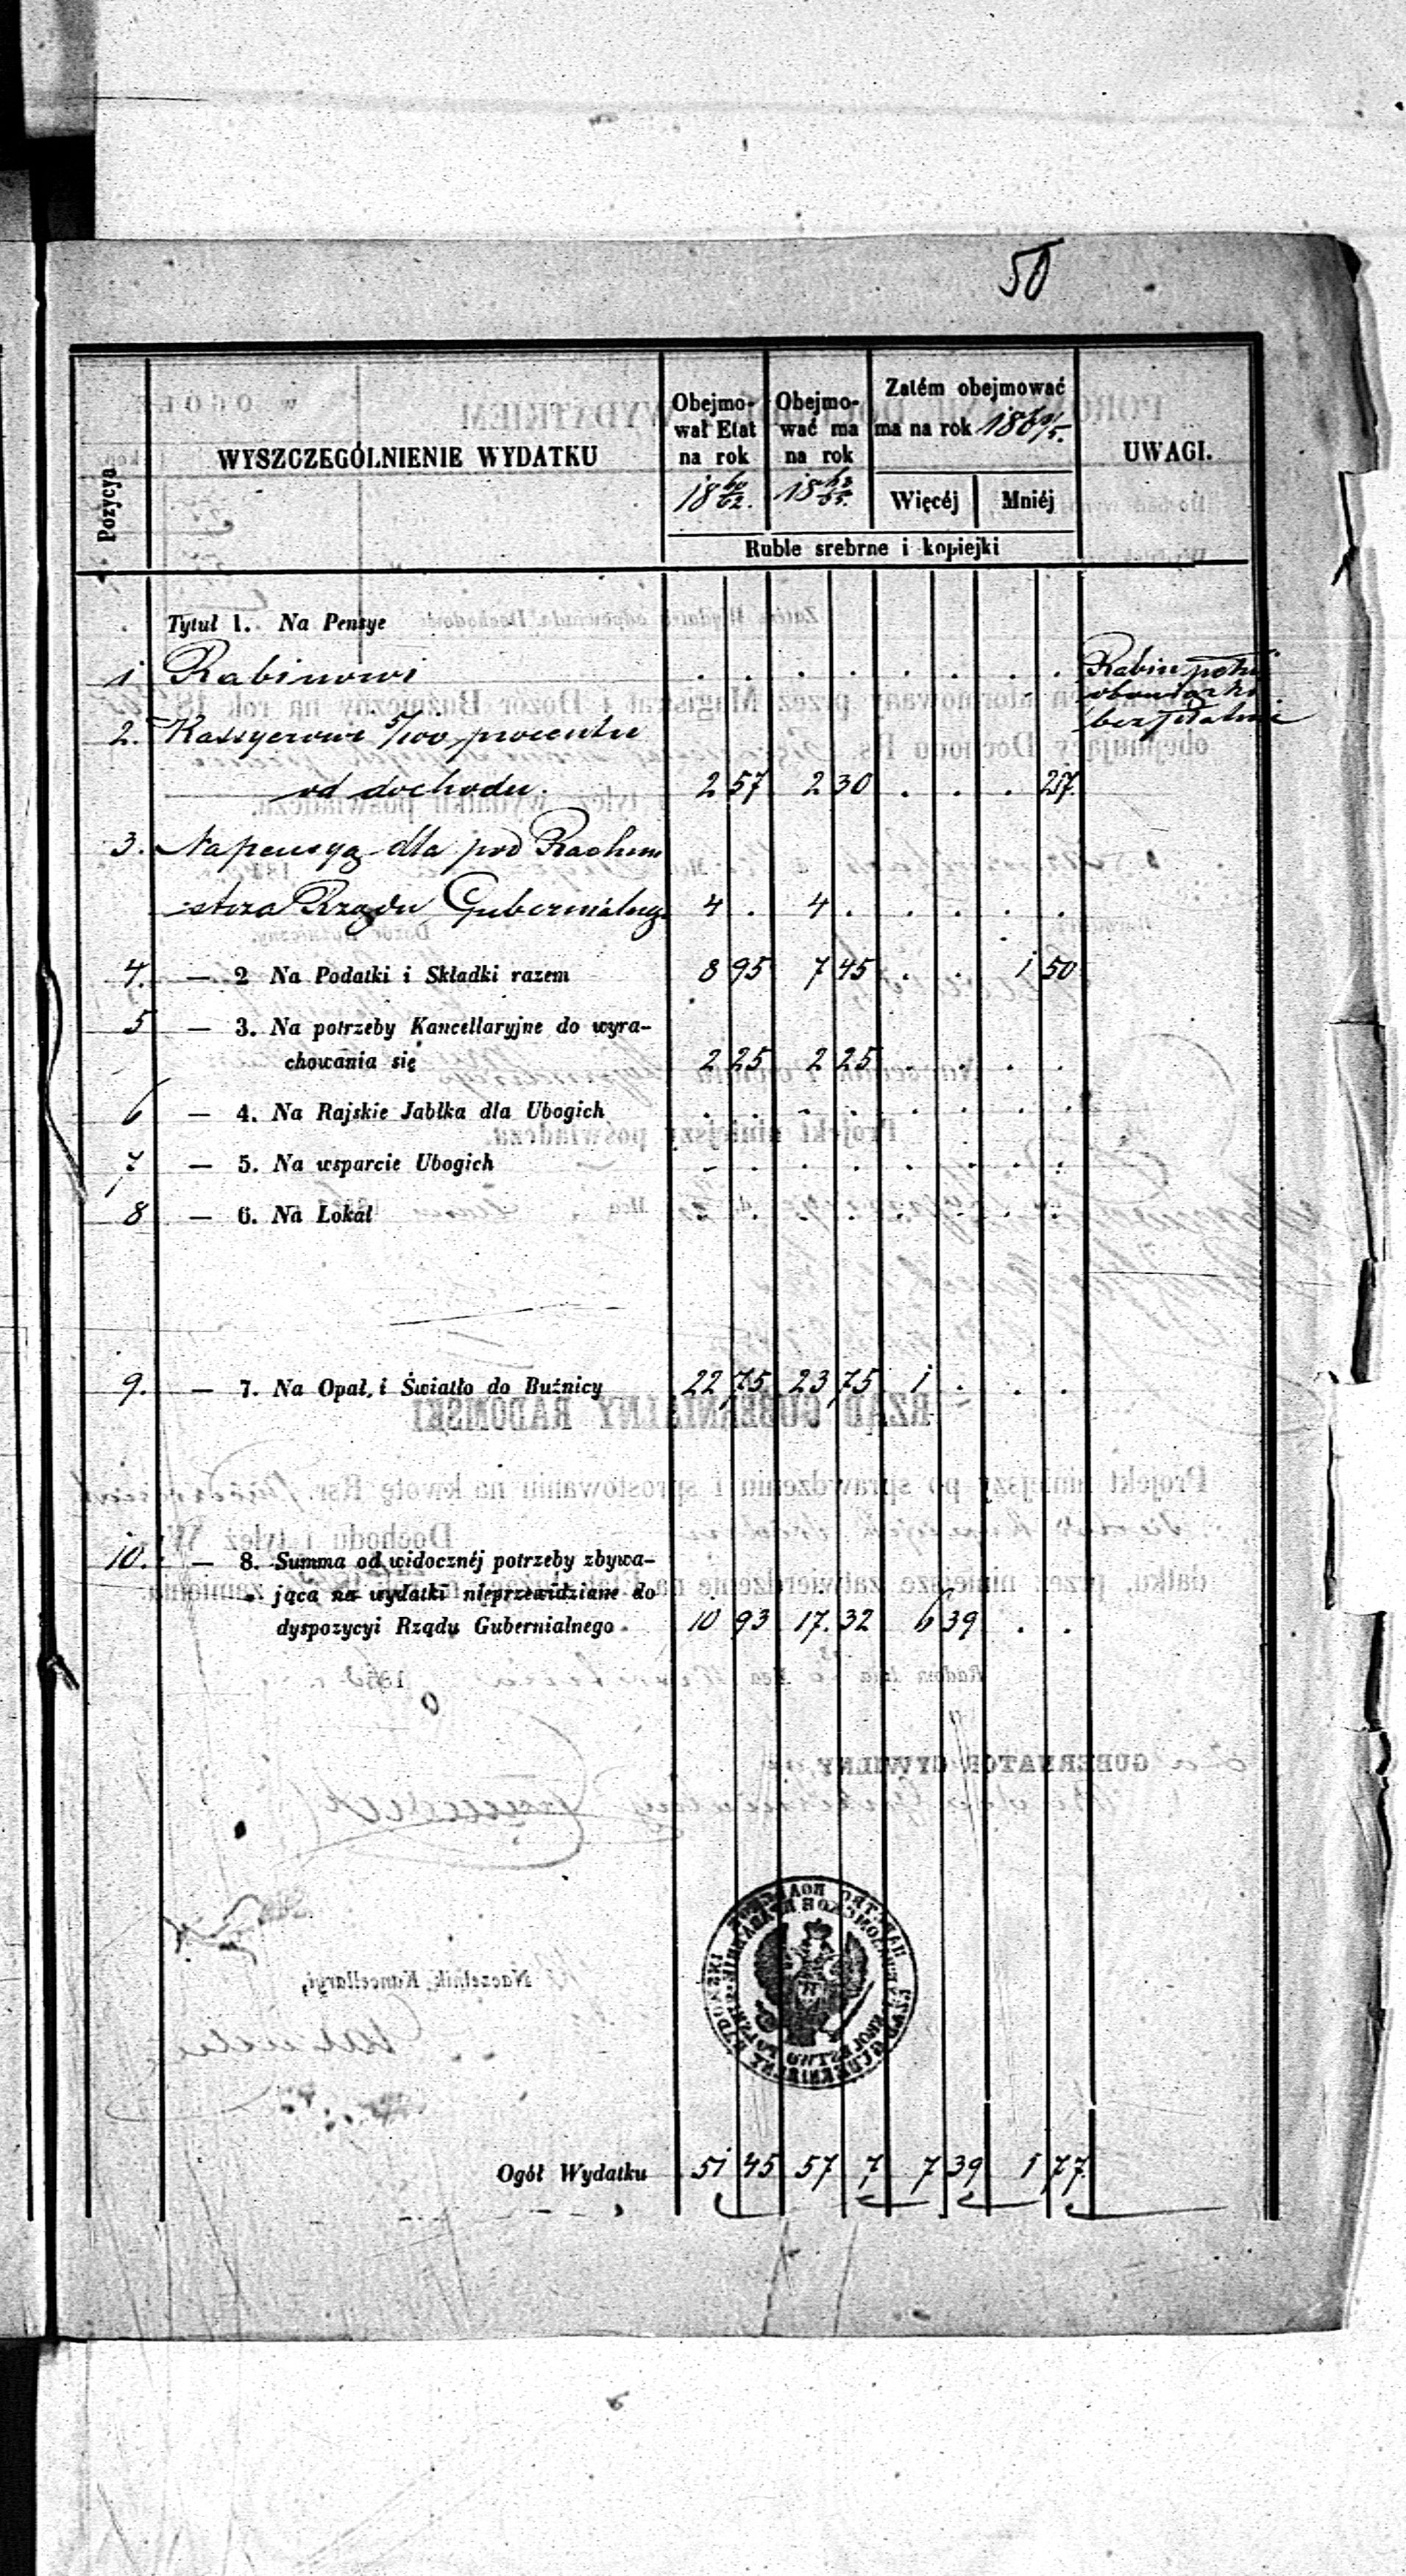 50
Pozycya
WYSZCZEGÓLNIENIE WYDATKU
Obejmo-
wał Etat
na rok
18 60/62.
Obejmo-
wać ma
na rok
18 63/65.
Zatém obejmować
ma na rok 18
Więcéj
Mniéj
UWAGI.
Ruble srebrne i kopiejki
Tytuł 1. Na Pensye
1 Rabinowi . . . . . . . . Rabin pełni
obowiązki
bezpłatnie
2. Kassyerowi 5/100 procentu
od dochodu. 2 57 2 30 . . . 27.
3. Na pensyą dla pod Rachmi
strza Rządu Gubernialneg. 4 . 4 . . . . .
4. — 2 Na Podatki i Składki razem 8 95 7 45 . . 1 50
5 — 3. Na potrzeby Kancellaryjne do wyra-
chowania się 2 25 2 25 . . . .
6 — 4. Na Rajskie Jabłka dla Ubogich . . . . . . . .
7 — 5. Na wsparcie Ubogich - . . . . . . .
8 — 6. Na Lokal . . . . . . . .
9. — 7. Na Opał, i Światło do Buźnicy 22 75 23 75 1 . . .
10. — 8. Summa od widocznéj potrzeby zbywa-
jąca na wydatki nieprzewidziane do
dyspozycyi Rządu Gubernialnego 10 93 17. 32 6 39 . .
Ogół Wydatku 51 45 57 7 7 39 1 77